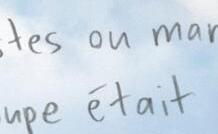 stes ou mar
upe était